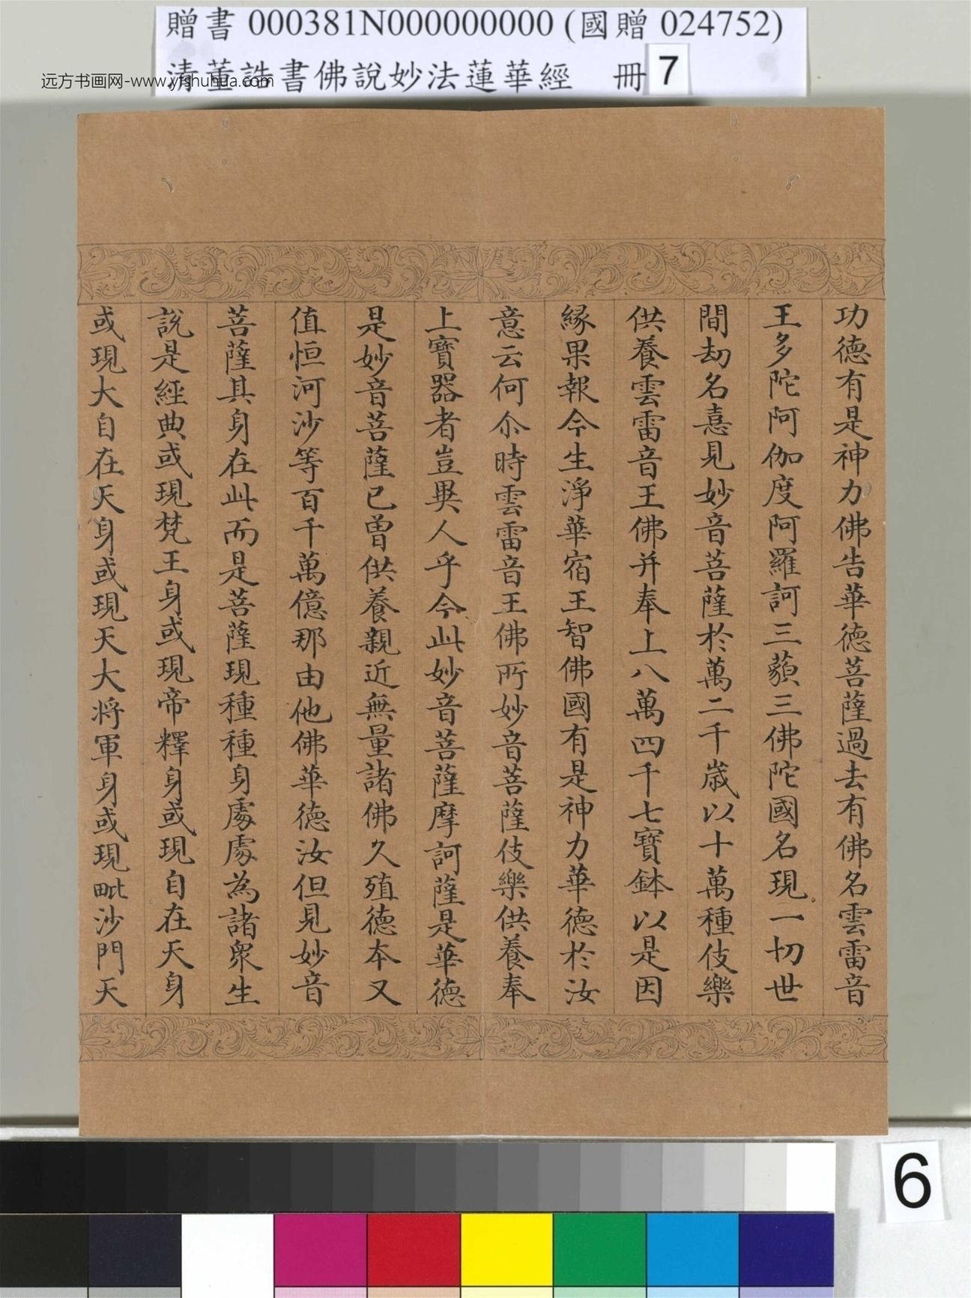 贈書 000381N000000000 (國贈 024752)
清董誥書佛說妙法蓮華經 冊 7
远方书画网-www.yfshuhua.com
功德有是神力佛告華德菩薩過去有佛名雲雷音
王多陀阿伽度阿羅訶三藐三佛陀國名現一切世
間劫名憙見妙音菩薩於萬二千歲以十萬種伎樂
供養雲雷音王佛并奉上八萬四千七寶鉢以是因
緣果報今生淨華宿王智佛國有是神力華德於汝
意云何尒時雲雷音王佛所妙音菩薩伎樂供養奉
上寶器者豈異人乎今此妙音菩薩摩訶薩是華德
是妙音菩薩已曾供養親近無量諸佛久殖德本又
值恒河沙等百千萬億那由他佛華德汝但見妙音
菩薩其身在此而是菩薩現種種身處處為諸衆生
說是經典或現梵王身或現帝釋身或現自在天身
或現大自在天身或現天大將軍身或現毗沙門天
6